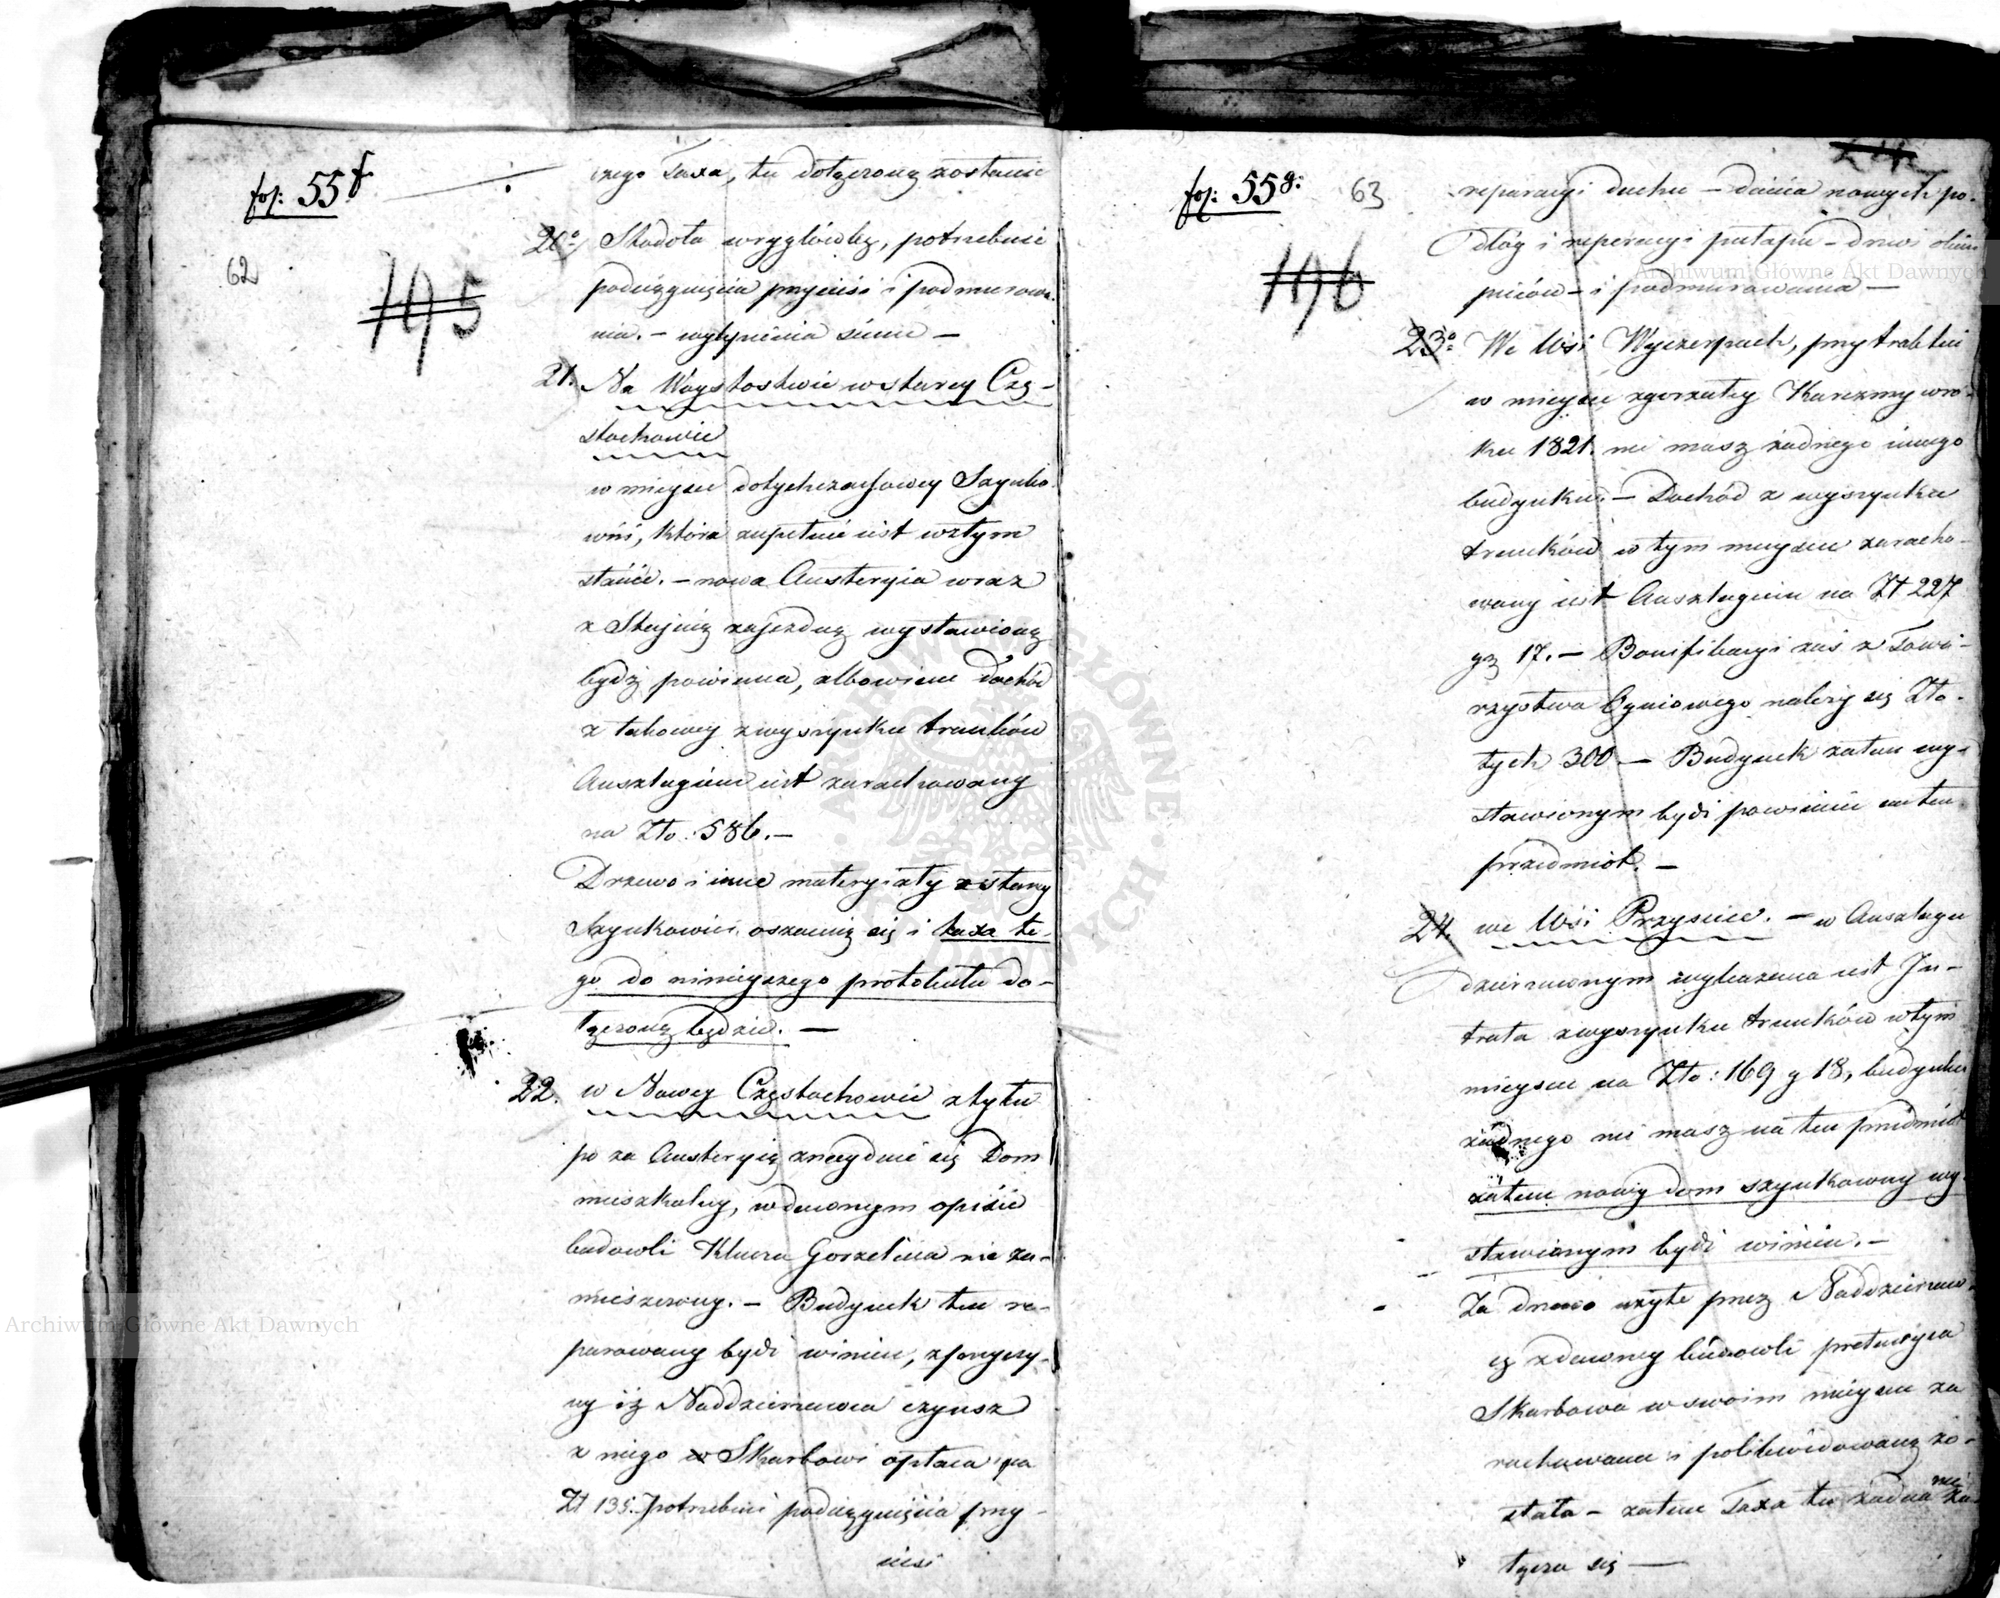 fol: 55 f
62
195
rzego Taxa, tu dołączoną zostanie
20o Stodoła w rygłówkę, potrzebuie
podciągnięcia przyciesi i podmurowa-
nia. – wylepienia ścian –
21. Na Woystostwie w starey Czę-
stochowie
w mieyscu dotychczasowey Szynko-
wni, która zupełnie iest w złym
stanie. – nowa Austeryia wraz
z Stajnią zajezdną wystawioną
bydź powinna, albowiem dochód
z takowey z wyszynku trunków
Anszlagiem iest zarachowany
na Złp. 586. –
Drzewo i inne materyiały z starey
Szynkowni oszacuią się i taxa te-
go do ninieyszego protokułu do-
łączoną będzie. –
22. w Nowey Częstochowie z tyłu
po za Austeryią znayduie się Dom
mieszkalny, w dawnym opisie
budowli Klucza Gorzelnia nie za-
mieszczony. – Budynek ten re-
parowany bydź winien, z przyczy-
ny iż Naddzierzawca czynsz
z niego Skarbowi opłaca po
Zł 135. potrzebuie podciągnięcia przy-
ciesi
fol: 55 g:
63
196
reparacyi dachu – dania nowych po-
dłóg i reperacyi pułapu – drzwi okien
pieców – i podmurowania –
23o: We Wsi Wyczerpach, przy trakcie
w mieyscu zgorzałey Karczmy w ro-
ku 1821. nie masz żadnego innego
budynku. – Dochód z wyszynku
trunków w tym mieyscu zaracho-
wany iest Anszlagiem na Zł 227
gr 17. – Bonifikacyi zaś z Towa-
rzystwa Ogniowego należy się Zło-
tych 300 – Budynek zatem wy-
stawionym bydź powinien na ten
przedmiot. –
24. we Wsi Przysiece. – w Anszlagu
dzierzawnym wykazana iest In-
trata z wyszynku trunków w tym
mieyscu na Złp: 169 g 18, budynku
żadnego nie masz na ten przedmiot
zatem nowy dom szynkowny wy-
stawionym bydź winien. –
Za drzewo użyte przez Naddzierzaw-
cę z dawney budowli pretensyia
Skarbowa w swoim mieyscu za-
rachowana i polikwidowaną zo-
stała – zatem Taxa tu żadna nie za-
łącza się –
Archiwum Główne Akt Dawnych
Archiwum Główne Akt Dawnych